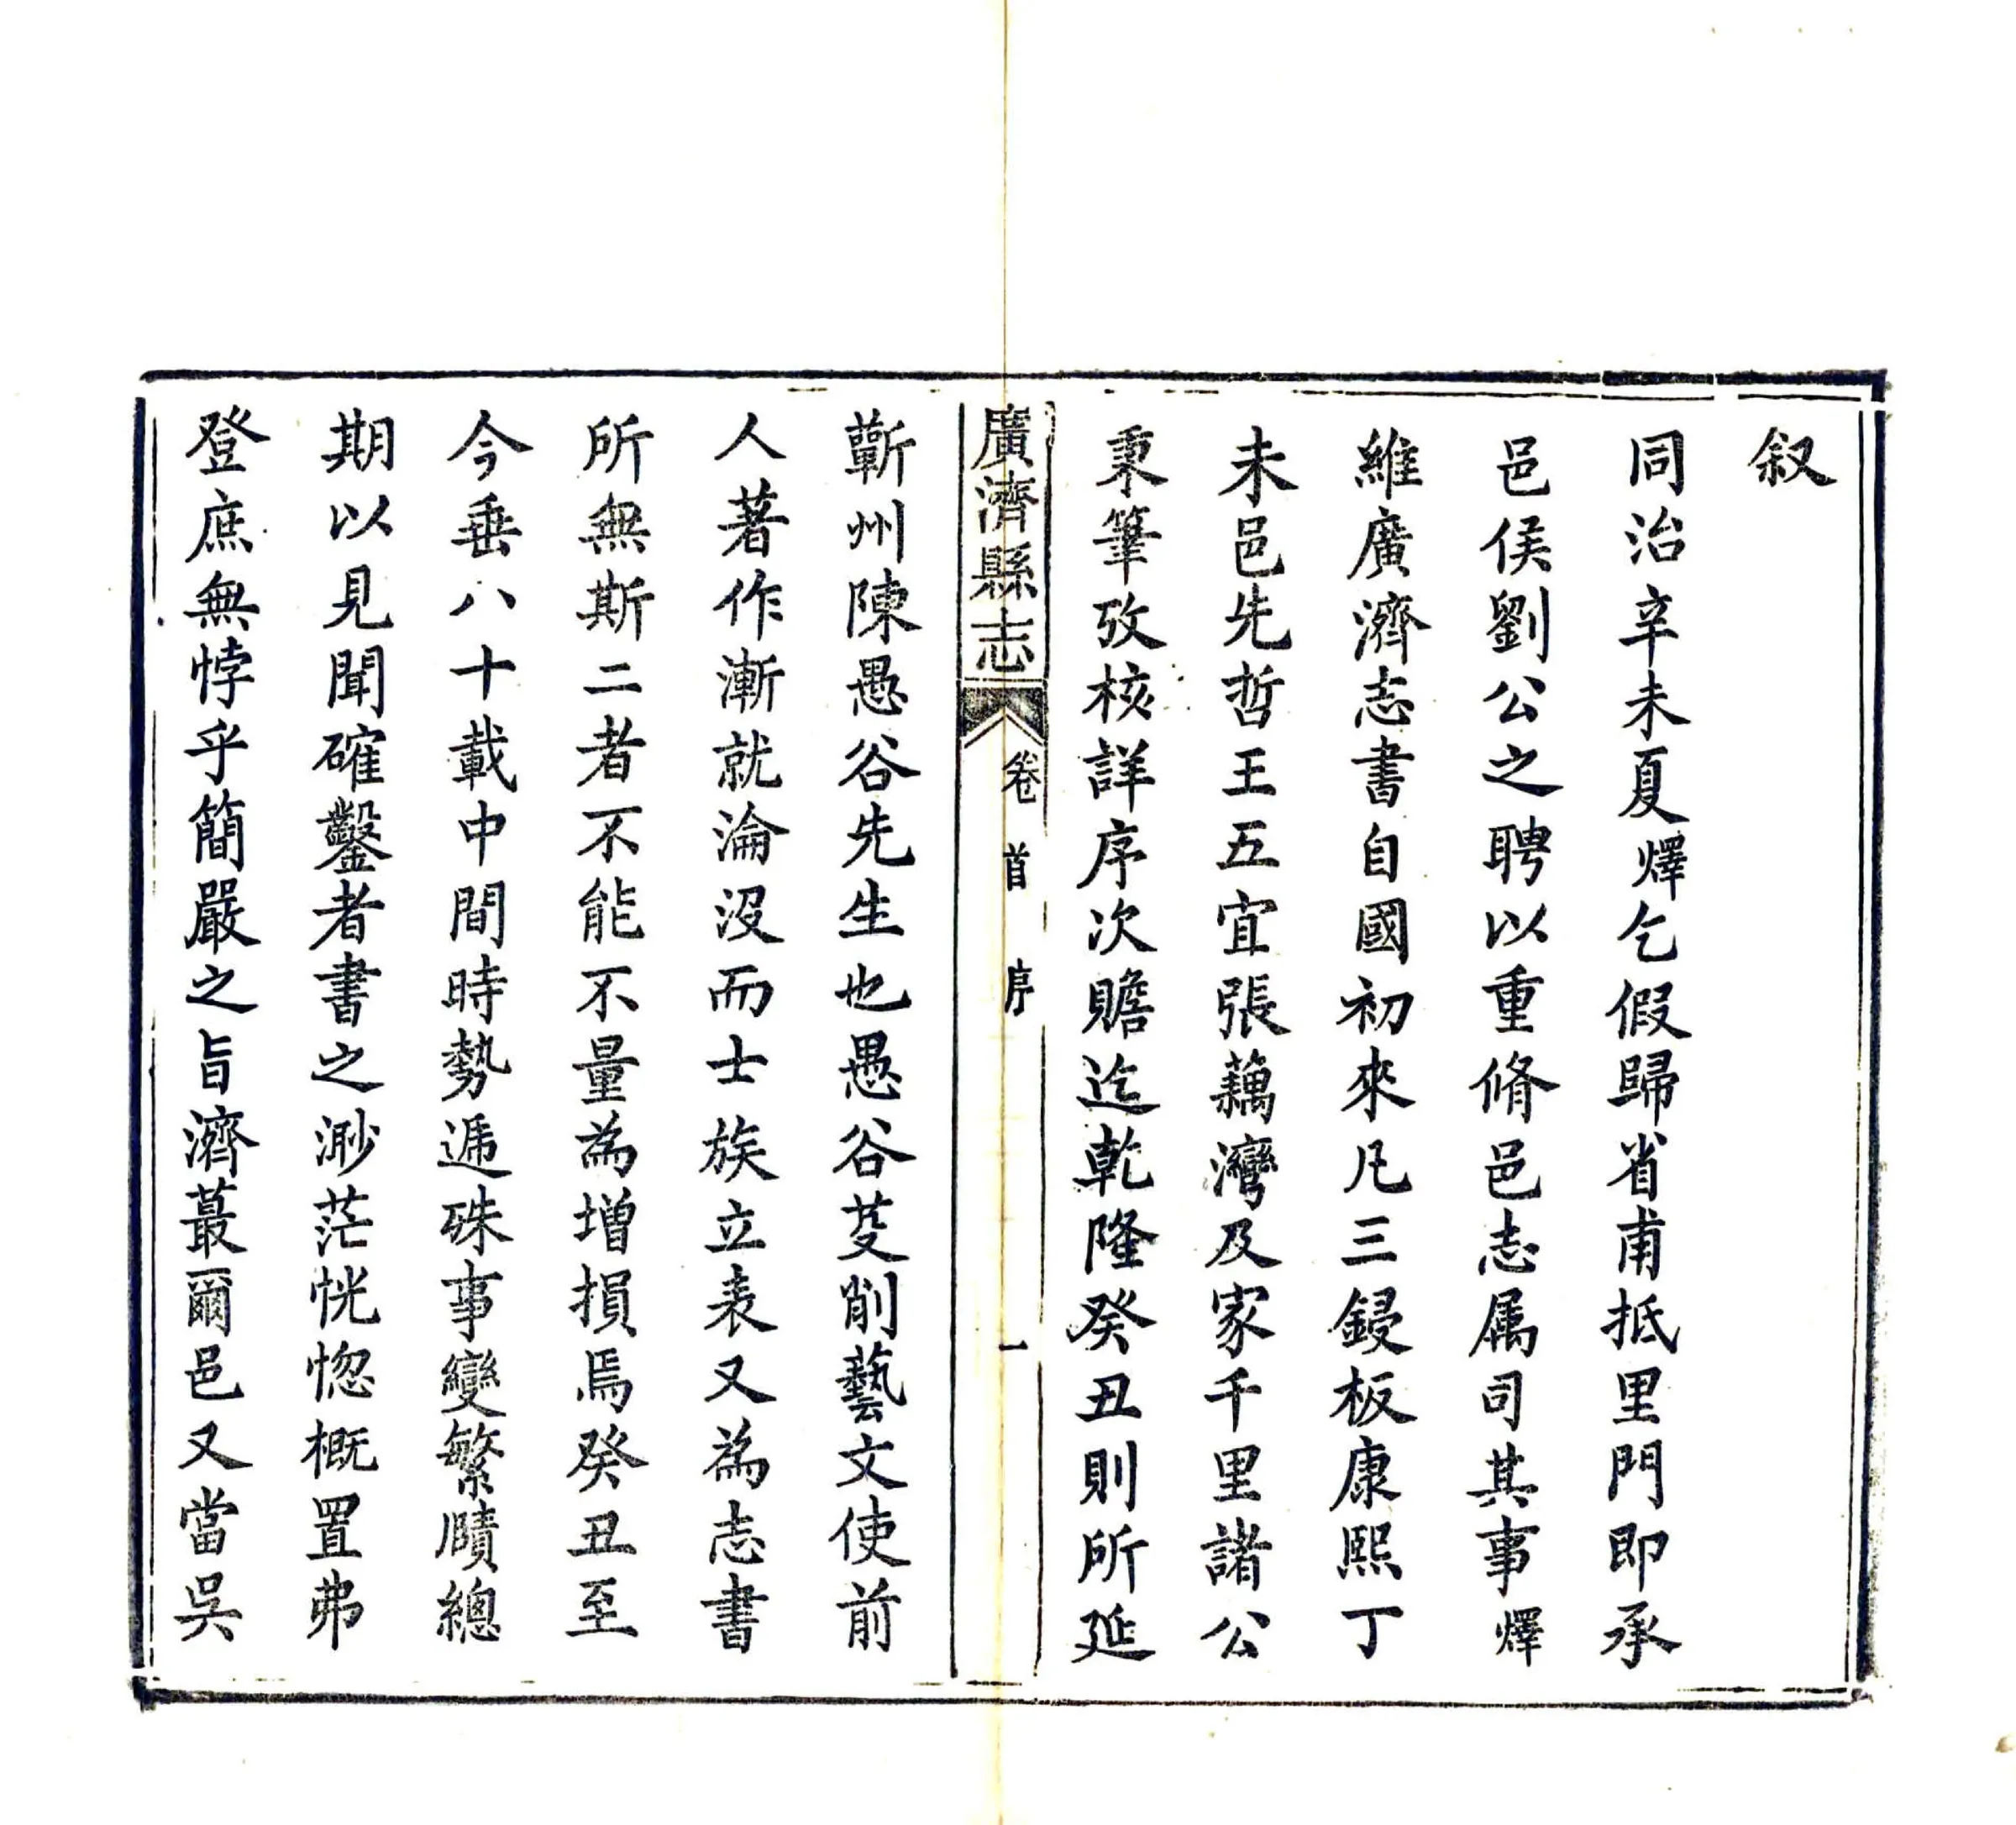 叙
同治辛未夏燡乞假歸省甫抵里門即承
邑侯劉公之聘以重脩邑志属司其事燡
維廣濟志書自國初來凡三鋟板康熙丁
未邑先哲王五宜張藕灣及家千里諸公
秉筆攷核詳序次贍迄乾隆癸丑則所延
廣濟縣志 卷首 序 一
蘄州陳愚谷先生也愚谷芟削藝文使前
人著作漸就淪沒而士族立表又為志書
所無斯二者不能不量為增損焉癸丑至
今垂八十載中間時勢遞殊事變繁賾總
期以見聞確鑿者書之渺茫恍惚概置弗
登庶無悖乎簡嚴之旨濟蕞爾邑又當吳